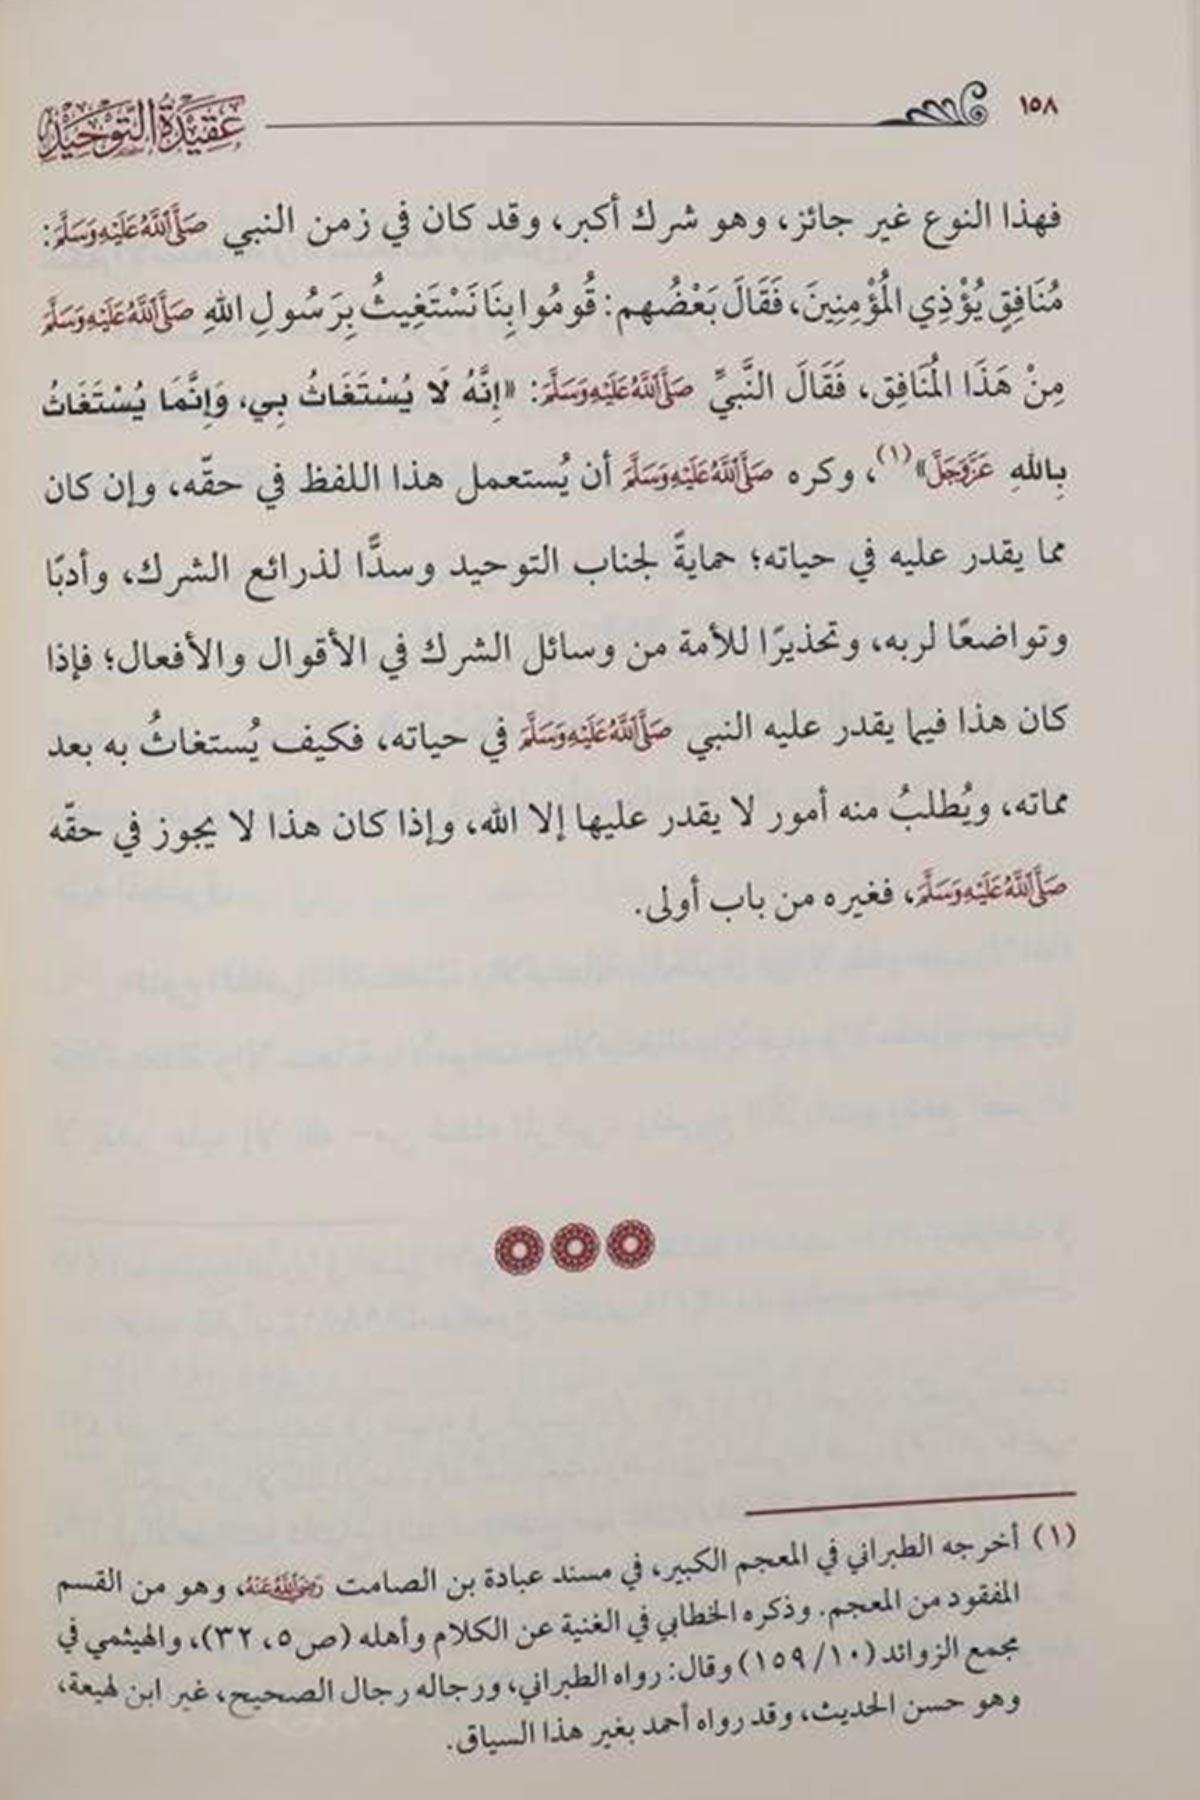 ١٥٨
عَقِيدَةُ التَّوْحِيدِ
فهذا النوع غير جائز، وهو شرك أكبر، وقد كان في زمن النبي صَلَّى اللَّهُ عَلَيْهِ وَسَلَّمَ:
مُنَافِقٍ يُؤْذِي المُؤْمِنِينَ، فَقَالَ بَعْضُهم: قُومُوا بِنَا نَسْتَغِيثُ بِرَسُولِ اللهِ صَلَّى اللَّهُ عَلَيْهِ وَسَلَّمَ
مِنْ هَذَا المُنَافِق، فَقَالَ النَّبيِّ صَلَّى اللَّهُ عَلَيْهِ وَسَلَّمَ: «إِنَّهُ لَا يُسْتَغَاثُ بِي، وَإِنَّمَا يُسْتَغَاثُ
بِاللهِ عَزَّوَجَلَّ»(١)، وكره صَلَّى اللَّهُ عَلَيْهِ وَسَلَّمَ أن يُستعمل هذا اللفظ في حقّه، وإن كان
مما يقدر عليه في حياته؛ حمايةً لجناب التوحيد وسدًّا لذرائع الشرك، وأدبًا
وتواضعًا لربه، وتحذيرًا للأمة من وسائل الشرك في الأقوال والأفعال؛ فإذا
كان هذا فيما يقدر عليه النبي صَلَّى اللَّهُ عَلَيْهِ وَسَلَّمَ في حياته، فكيف يُستغاثُ به بعد
مماته، ويُطلبُ منه أمور لا يقدر عليها إلا الله، وإذا كان هذا لا يجوز في حقّه
صَلَّى اللَّهُ عَلَيْهِ وَسَلَّمَ، فغيره من باب أولى.
(١) أخرجه الطبراني في المعجم الكبير، في مسند عبادة بن الصامت رَضِيَ اللَّهُ عَنْهُ، وهو من القسم
المفقود من المعجم. وذكره الخطابي في الغنية عن الكلام وأهله (ص٥، ٣٢)، والهيثمي في
مجمع الزوائد (١٠/ ١٥٩) وقال: رواه الطبراني، ورجاله رجال الصحيح، غير ابن لهيعة،
وهو حسن الحديث، وقد رواه أحمد بغير هذا السياق.